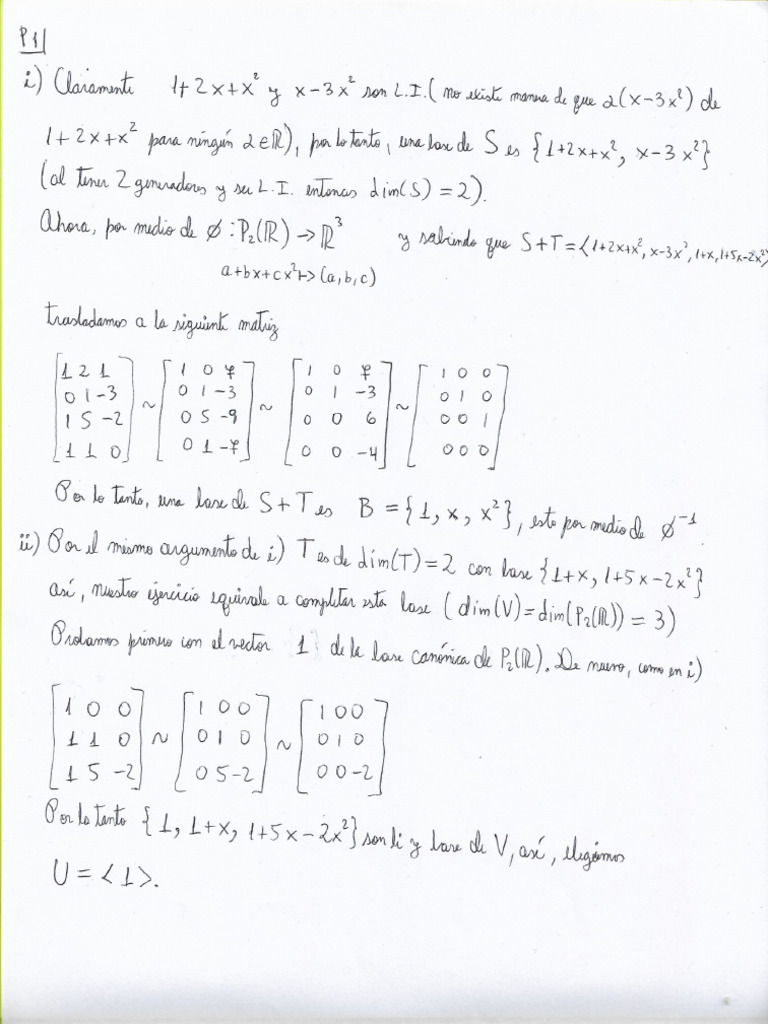 P1
i) Claramente 1+2x+x² y x-3x² son L.I. (no existe manera de que 2(x-3x²) de
1+2x+x² para ningún 2∈ℝ), por lo tanto, una base de S es {1+2x+x², x-3x²}
(al tener 2 generadores y ser L.I. entonces dim(S)=2).
Ahora, por medio de ø: P₂(ℝ) → ℝ³ y sabiendo que S+T=⟨1+2x+x², x-3x², 1+x, 1+5x-2x²⟩
a+bx+cx² ↦ (a,b,c)
trasladamos a la siguiente matriz
[1 2 1] [1 0 7] [1 0 7] [1 0 0]
[0 1 -3] [0 1 -3] [0 1 -3] [0 1 0]
[1 5 -2] ~ [0 5 -9] ~ [0 0 6] ~ [0 0 1]
[1 1 0] [0 1 -7] [0 0 -4] [0 0 0]
Por lo tanto, una base de S+T es B = {1, x, x²}, esto por medio de ø⁻¹
ii) Por el mismo argumento de i) T es de dim(T)=2 con base {1+x, 1+5x-2x²}
así, nuestro ejercicio equivale a completar esta base (dim(V)=dim(P₂(ℝ))=3)
Probamos primero con el vector 1 de la base canónica de P₂(ℝ). De nuevo, como en i)
[1 0 0] [1 0 0] [1 0 0]
[1 1 0] ~ [0 1 0] ~ [0 1 0]
[1 5 -2] [0 5 -2] [0 0 -2]
Por lo tanto {1, 1+x, 1+5x-2x²} son li y base de V, así, elegimos
U = ⟨1⟩.